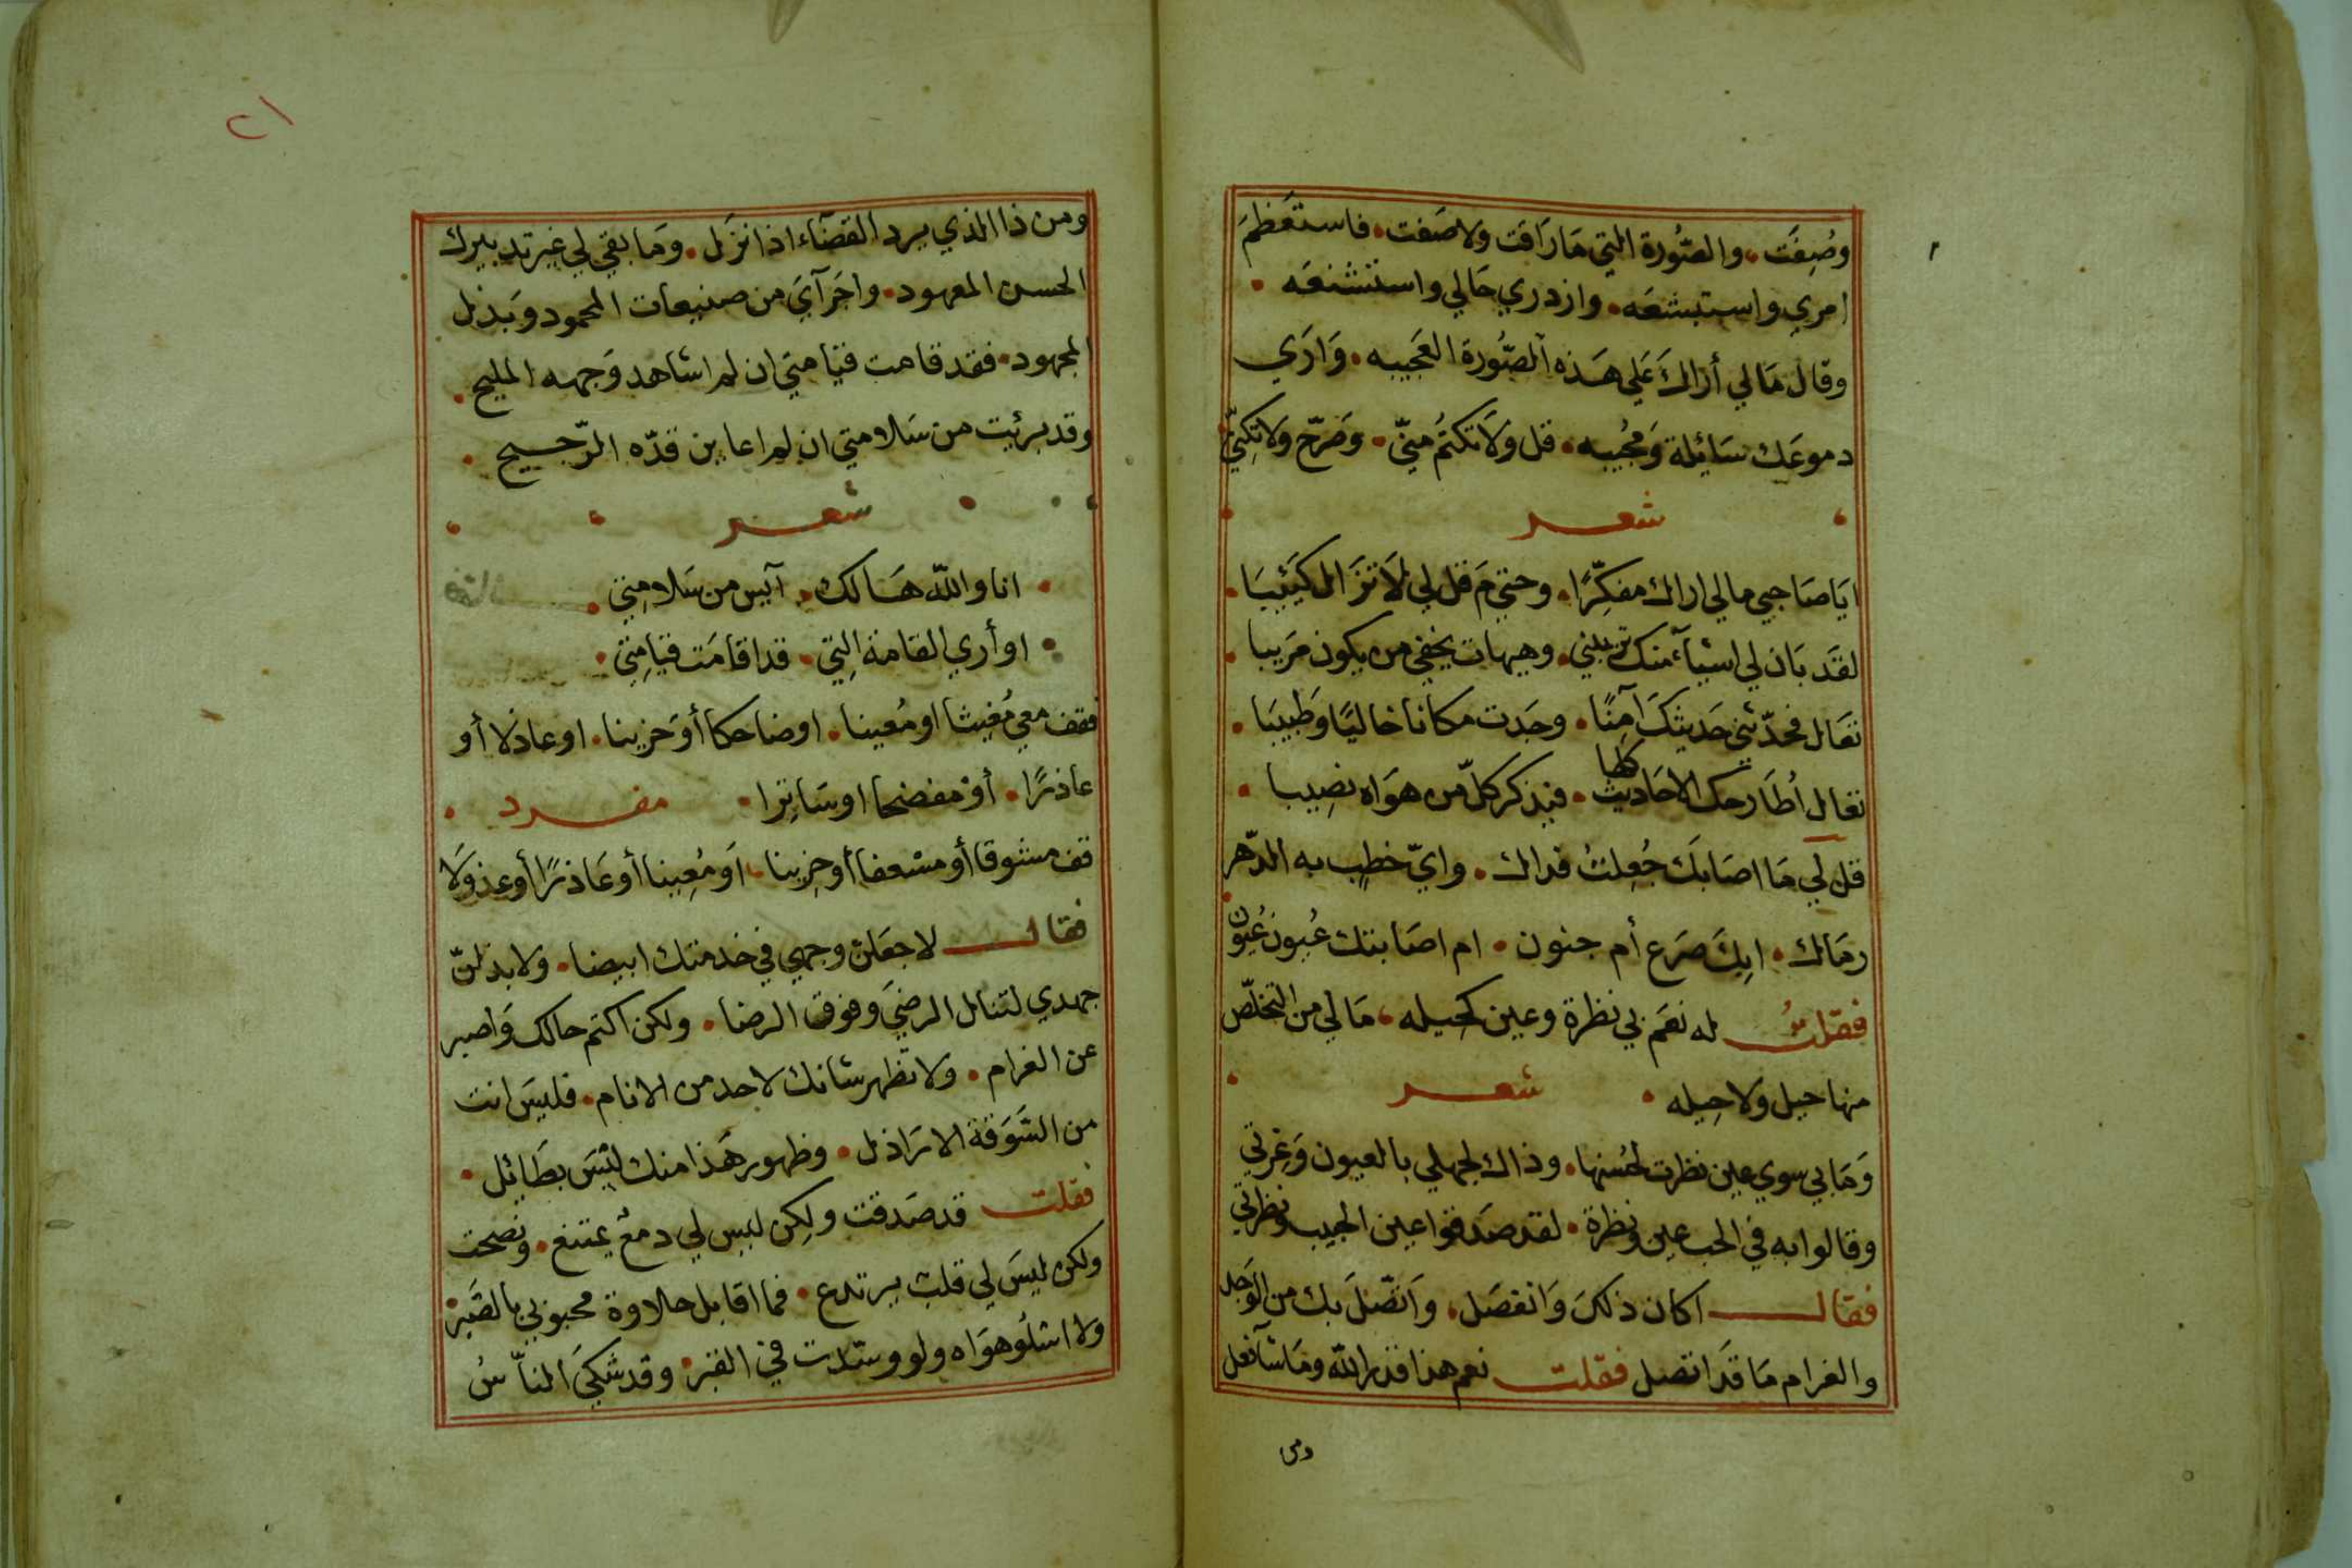 وصُفِقَت، والصُّورة التي مَا رَاقت ولا صَفت. فاستعَظمَ
امري واستبشعَه. وازدري حَالي واستشنعَه.
وقال مَالي أراكَ عَلي هَذه الصُّورة العَجيبه. وَارَي
دموعَك سَائِلة وَمجُيبه. قل ولَا تكتمُ منّي. وصَرّح ولا تكنّي
شعر
ايَا صَاحبي مالي اراك مفكِّرًا. وحتي مَ قل لي لَا تزَال كَئِيبَا.
لقَد بَان لي اشيآء منك تريبني. وهيهات يخفي من يكون مَريبا.
تعَال فحدّثني حَديثكَ آمِنًا. وجَدت مكانا خاليًا وَطبيبَا.
تعال اُطَارحك الاحَاديث كلها. فيذكر كلّ من هوَاه نصِيبا.
قل لي مَا اصَابَك جُعِلتُ فداك. وايّ خطبٍ به الدّهر
رمَاك. ابِكَ صَرَع أم جنون. ام اصَابتك عُيون عُيون
فقلتُ له نعَم بي نظرة وعين كحَيله، مَا لي من التخلّص
منها حيل ولا حِيله. شعر
وَمَا بي سوي عين نظرت لحُسنها. وذاك لجهلي بالعيون وَغِرتي
وقالوا به في الحب عين ونظرة. لقد صَدقوا عين الحبيب ونظرتي
فقال اكان ذلكَ وَانفصَل. وَاتّصَلَ بك من الوَجد
والغرام مَا قَد اتصل فقلت نعم هذا قدر الله ومَا شآ فعل
ومن
٢١
ومن ذا الذي يرد القضآء اذا نزَل. وَمَا بقي لي غير تدبيرك
الحسن المعهود. واجرَآيَ من صنيعات المحمود وَبَذل
المجهود. فقد قامت قيامتي ان لم اشاهد وَجهه المليح.
وقد برئيت من سَلامتي ان لم اعاين قدّه الرّجيح.
شعر
انا والله هَالك. آيس من سَلامِتي.
او أري القامة الِتي. قد اقامَت قيامِتي.
فقف معي مُغيثا او مُعينا. او ضاحكا أو حَزينا. او عاذلا أو
عاذرًا. أوْ مفضحا او سَاتِرا. مفرد
قف مشوقا أو مسْعفا أو حِزينا، اَو مُعِينا أو عَاذرًا أو عذولَا
فقال لاجعَلنّ وجهي في خدمتك ابيضا. ولابذلنّ
جهدي لتنال الرضيَ وَفوق الرضا. ولكن اكتم حالك وَاصبر
عن الغرام. ولا تظهر شانك لاحد من الانام. فليسَ انت
من السَّوَقة الارَاذل. وظهور هَذا منك ليْسَ بطَائِل.
فقلت قد صَدقت ولِكن ليس لي دمعٌ يمتنع. ونصحت
ولكن ليسَ لي قلبٌ يرتدع. فما اقابل حالاوة محبوبي بالصَّبر.
ولا اسلُو هوَاه ولو وسّدت في القبر. وقد شكيَ النّاسُ